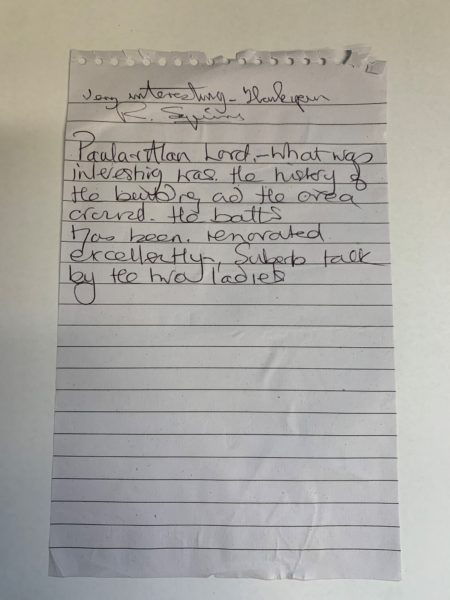 Very interesting - Thankyou
R. Squires
Paula + Alan Lord. - What was
interesting was the history of
the building ad the area
around. the batts
has been. renovated
excellently, Suberb talk
by the two ladies